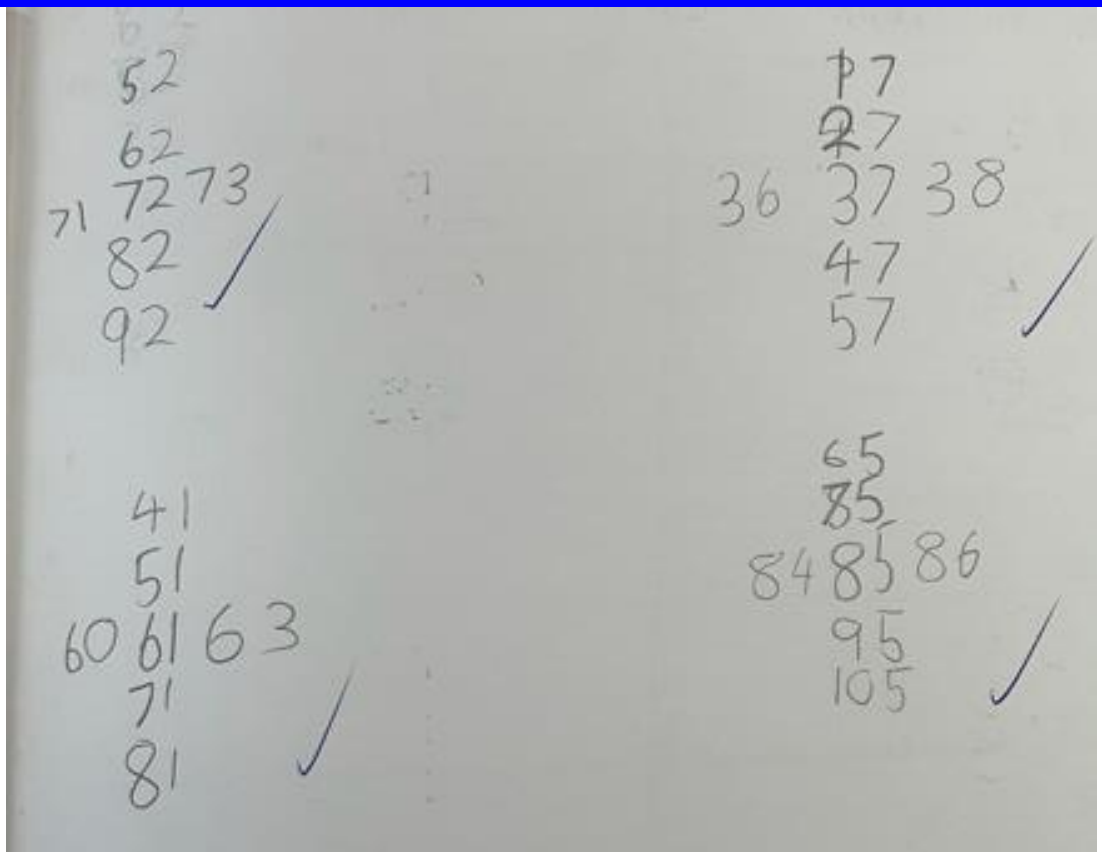 52
62
71 72 73
82
92
17
27
36 37 38
47
57
41
51
60 61 63
71
81
65
85
84 85 86
95
105